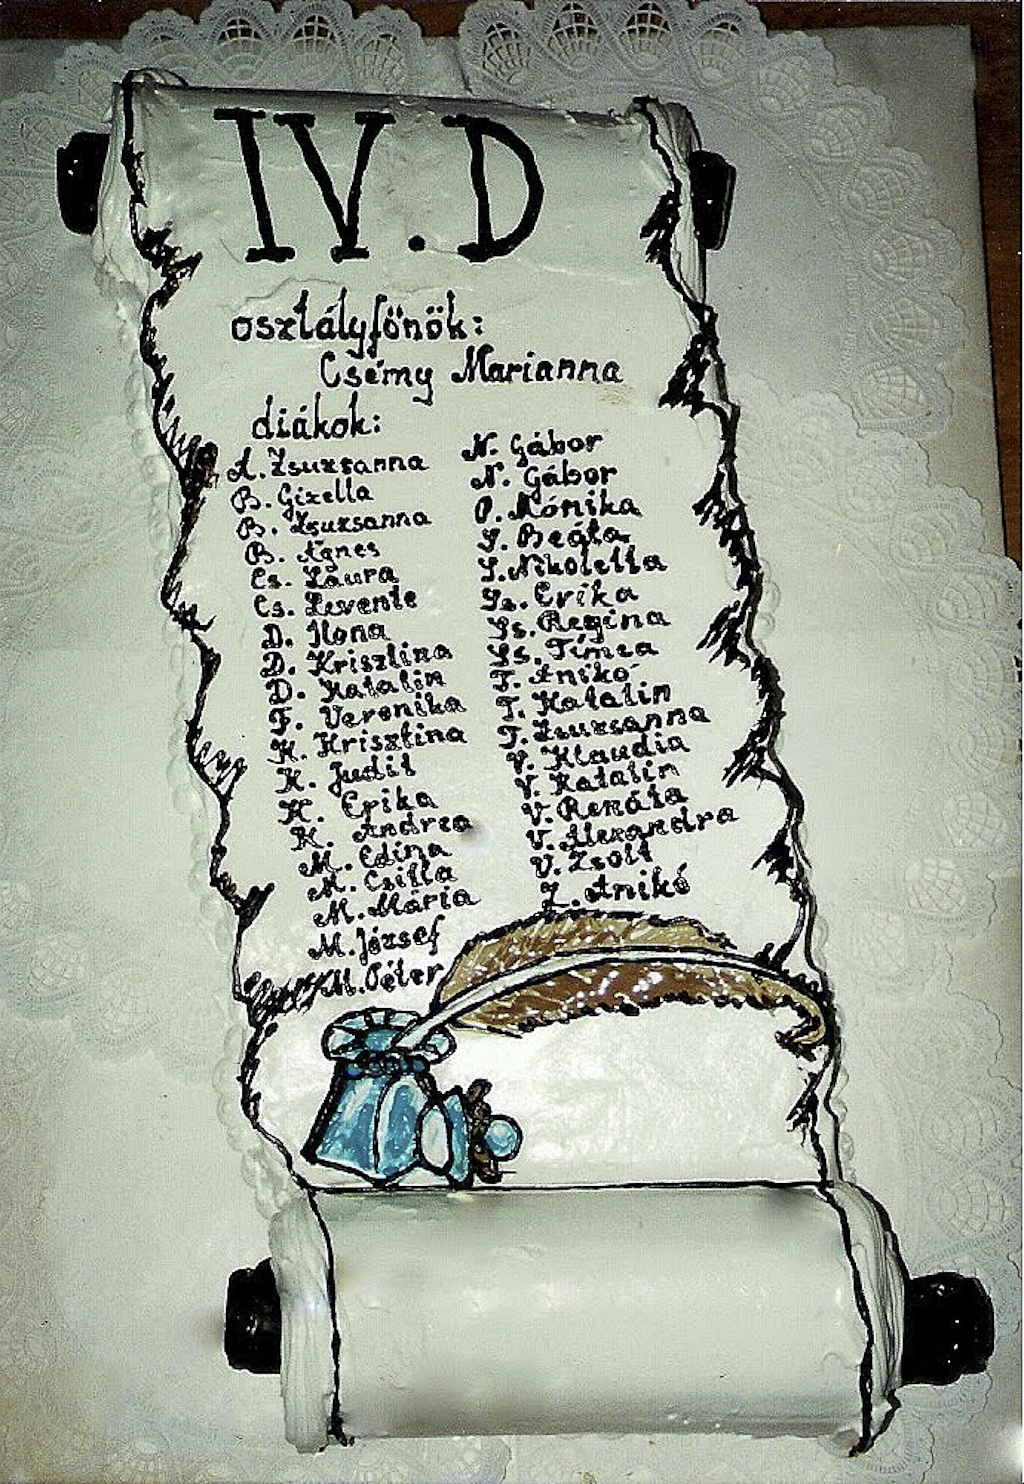 IV. D
osztályfőnök:
Csémy Marianna
diákok:
A. Zsuzsanna
B. Gizella
B. Zsuzsanna
B. Ágnes
Cs. Laura
Cs. Levente
D. Ilona
D. Krisztina
D. Katalin
F. Veronika
K. Krisztina
K. Judit
K. Erika
K. Andrea
M. Edina
M. Csilla
M. Mária
M. József
M. Péter
N. Gábor
N. Gábor
P. Mónika
S. Beáta
S. Nikoletta
Sz. Erika
Sz. Regina
Sz. Tímea
T. Anikó
T. Katalin
T. Zsuzsanna
V. Klaudia
V. Katalin
V. Renáta
V. Alexandra
V. Zsolt
Z. Anikó